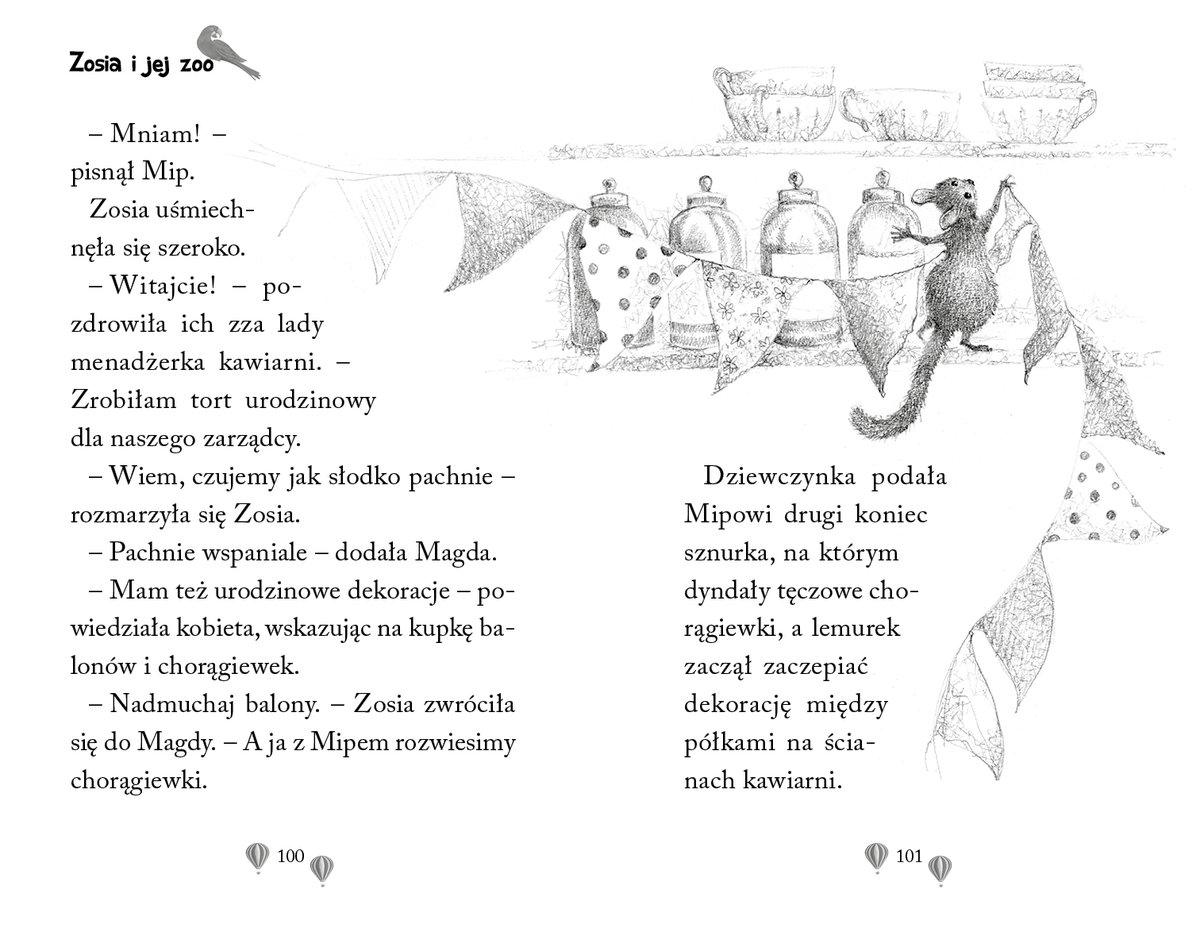 Zosia i jej zoo
– Mniam! –
pisnął Mip.
Zosia uśmiech-
nęła się szeroko.
– Witajcie! – po-
zdrowiła ich zza lady
menadżerka kawiarni. –
Zrobiłam tort urodzinowy
dla naszego zarządcy.
– Wiem, czujemy jak słodko pachnie –
rozmarzyła się Zosia.
– Pachnie wspaniale – dodała Magda.
– Mam też urodzinowe dekoracje – po-
wiedziała kobieta, wskazując na kupkę ba-
lonów i chorągiewek.
– Nadmuchaj balony. – Zosia zwróciła
się do Magdy. – A ja z Mipem rozwiesimy
chorągiewki.
100
Dziewczynka podała
Mipowi drugi koniec
sznurka, na którym
dyndały tęczowe cho-
rągiewki, a lemurek
zaczął zaczepiać
dekorację między
półkami na ścia-
nach kawiarni.
101